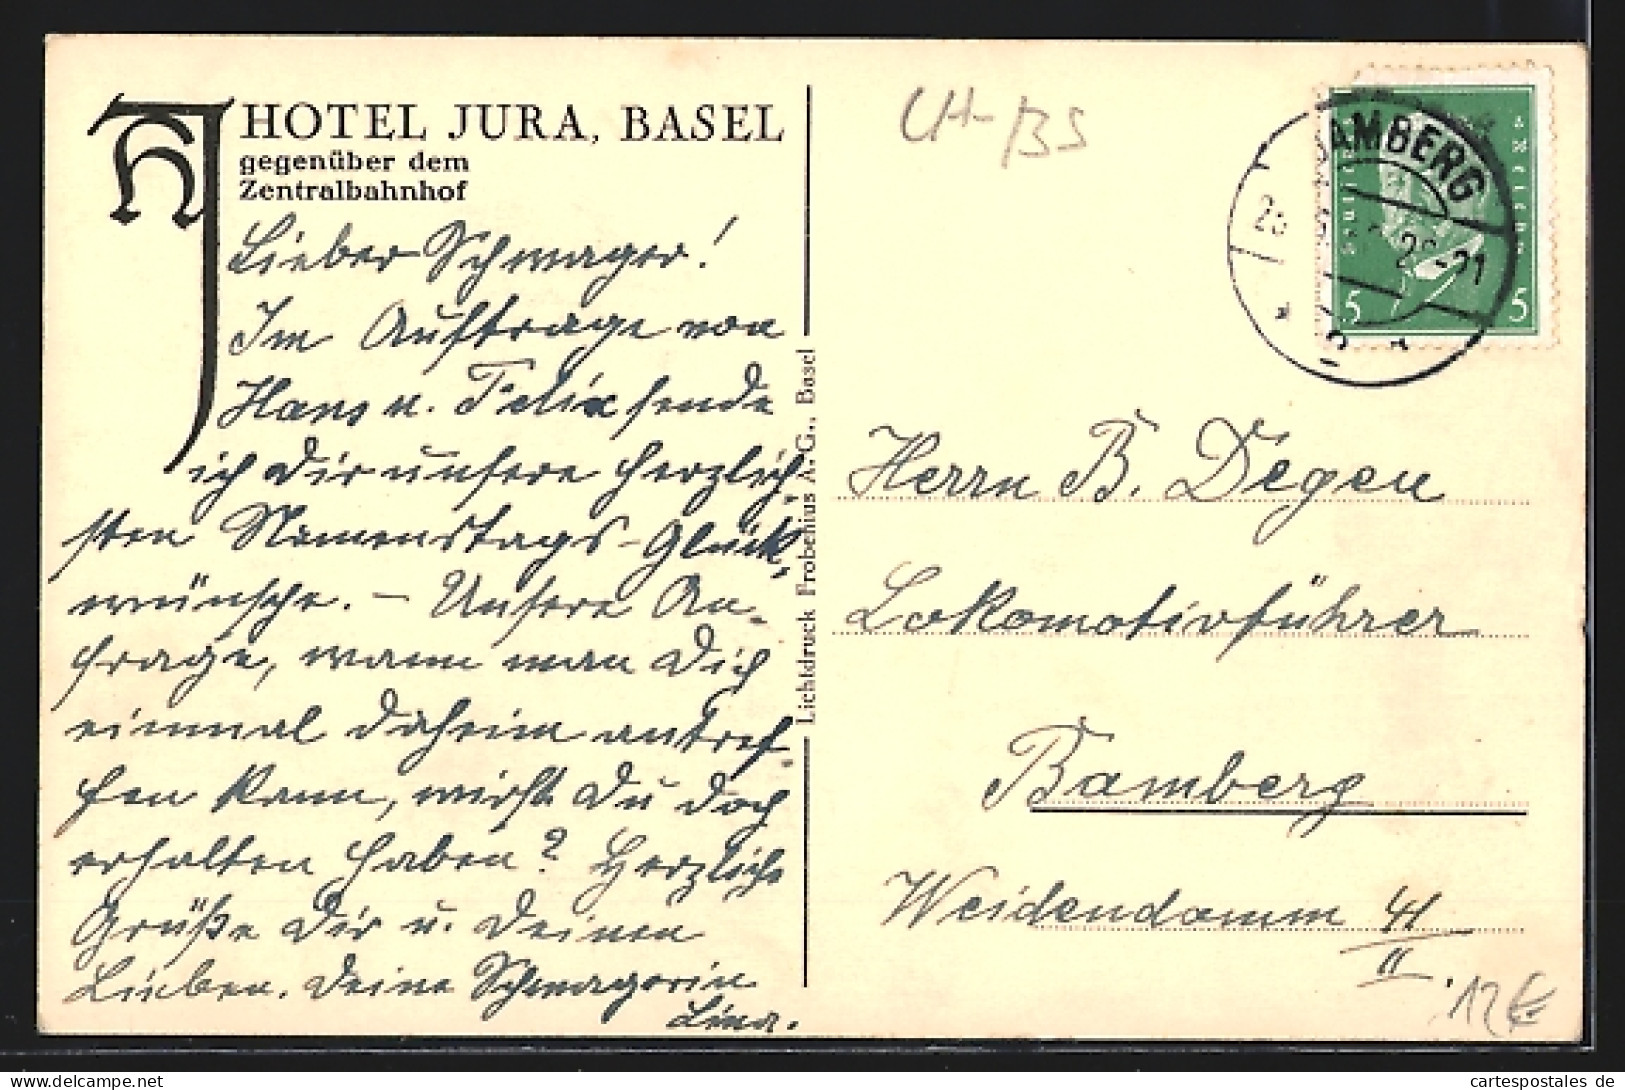 HOTEL JURA, BASEL
gegenüber dem
Zentralbahnhof
Lieber Schwager!
Im Auftrage von
Hans u. Felix sende
ich Dir unsere herzlich-
sten Namenstags-Glück-
wünsche. – Unsere An-
frage, wann man Dich
einmal daheim antref-
fen kann, wirst Du doch
erhalten haben? Herzliche
Grüße Dir u. Deinen
Lieben. Deine Schwagerin
Lina.
Lichtdruck Frobenius A.-G., Basel
CH-BS
BAMBERG
5 5
Herrn B. Degen
Lokomotivführer
Bamberg
Weidendamm 41
II.
12€
cartespostales de